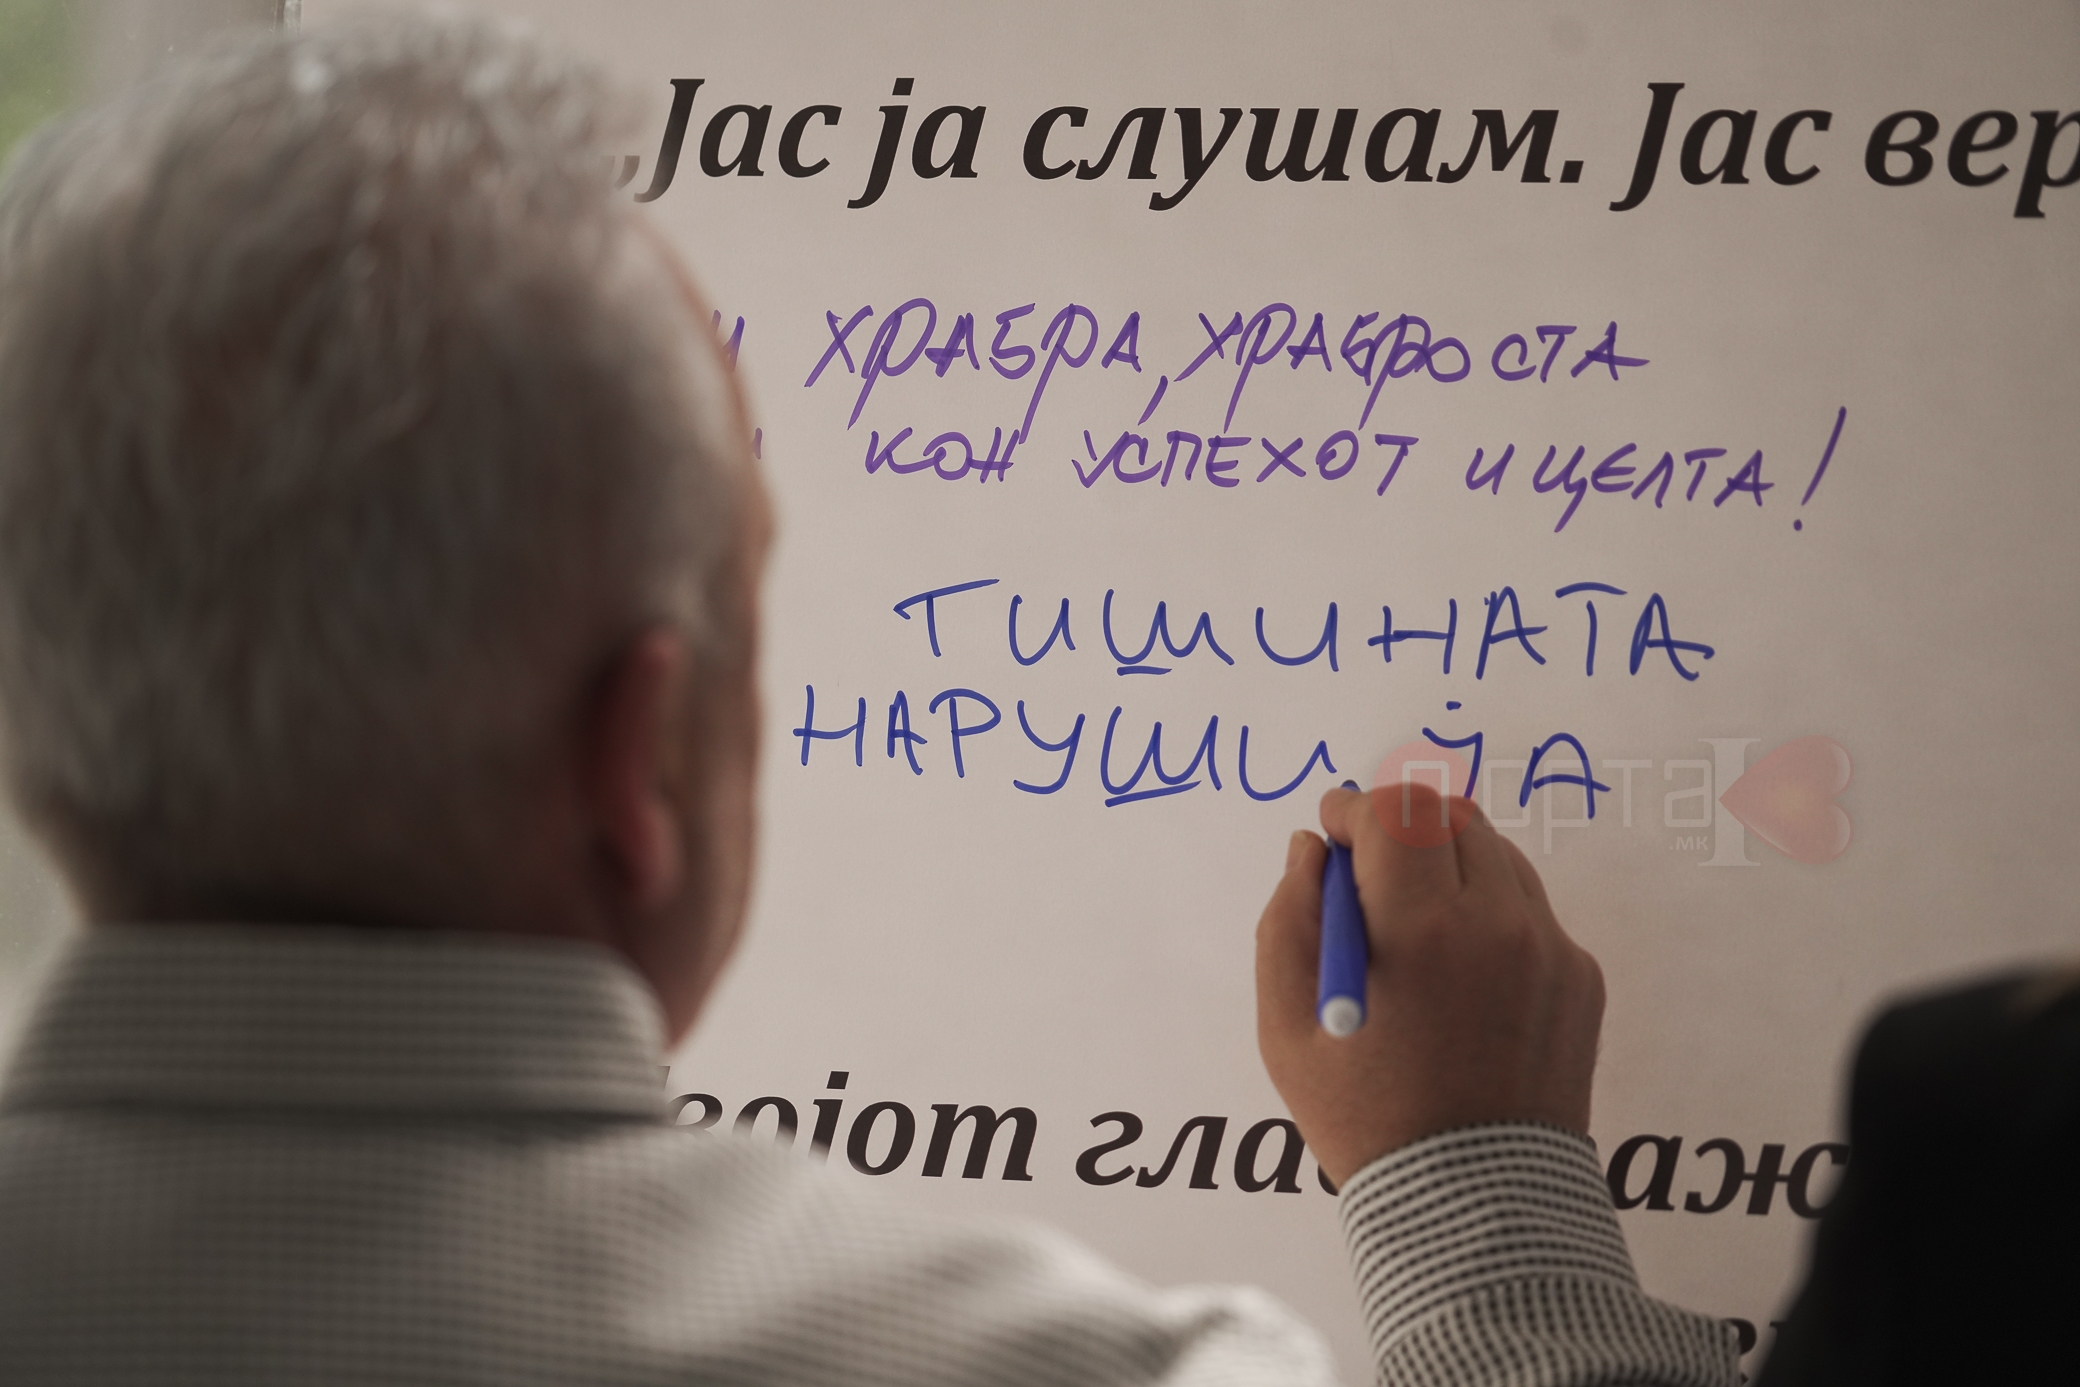 „Јас ја слушам. Јас вер
И ХРАБРА, ХРАБРОСТА
КОН УСПЕХОТ И ЦЕЛТА!
ТИШИНАТА
НАРУШИ ЈА
порта
.мк
војот глас